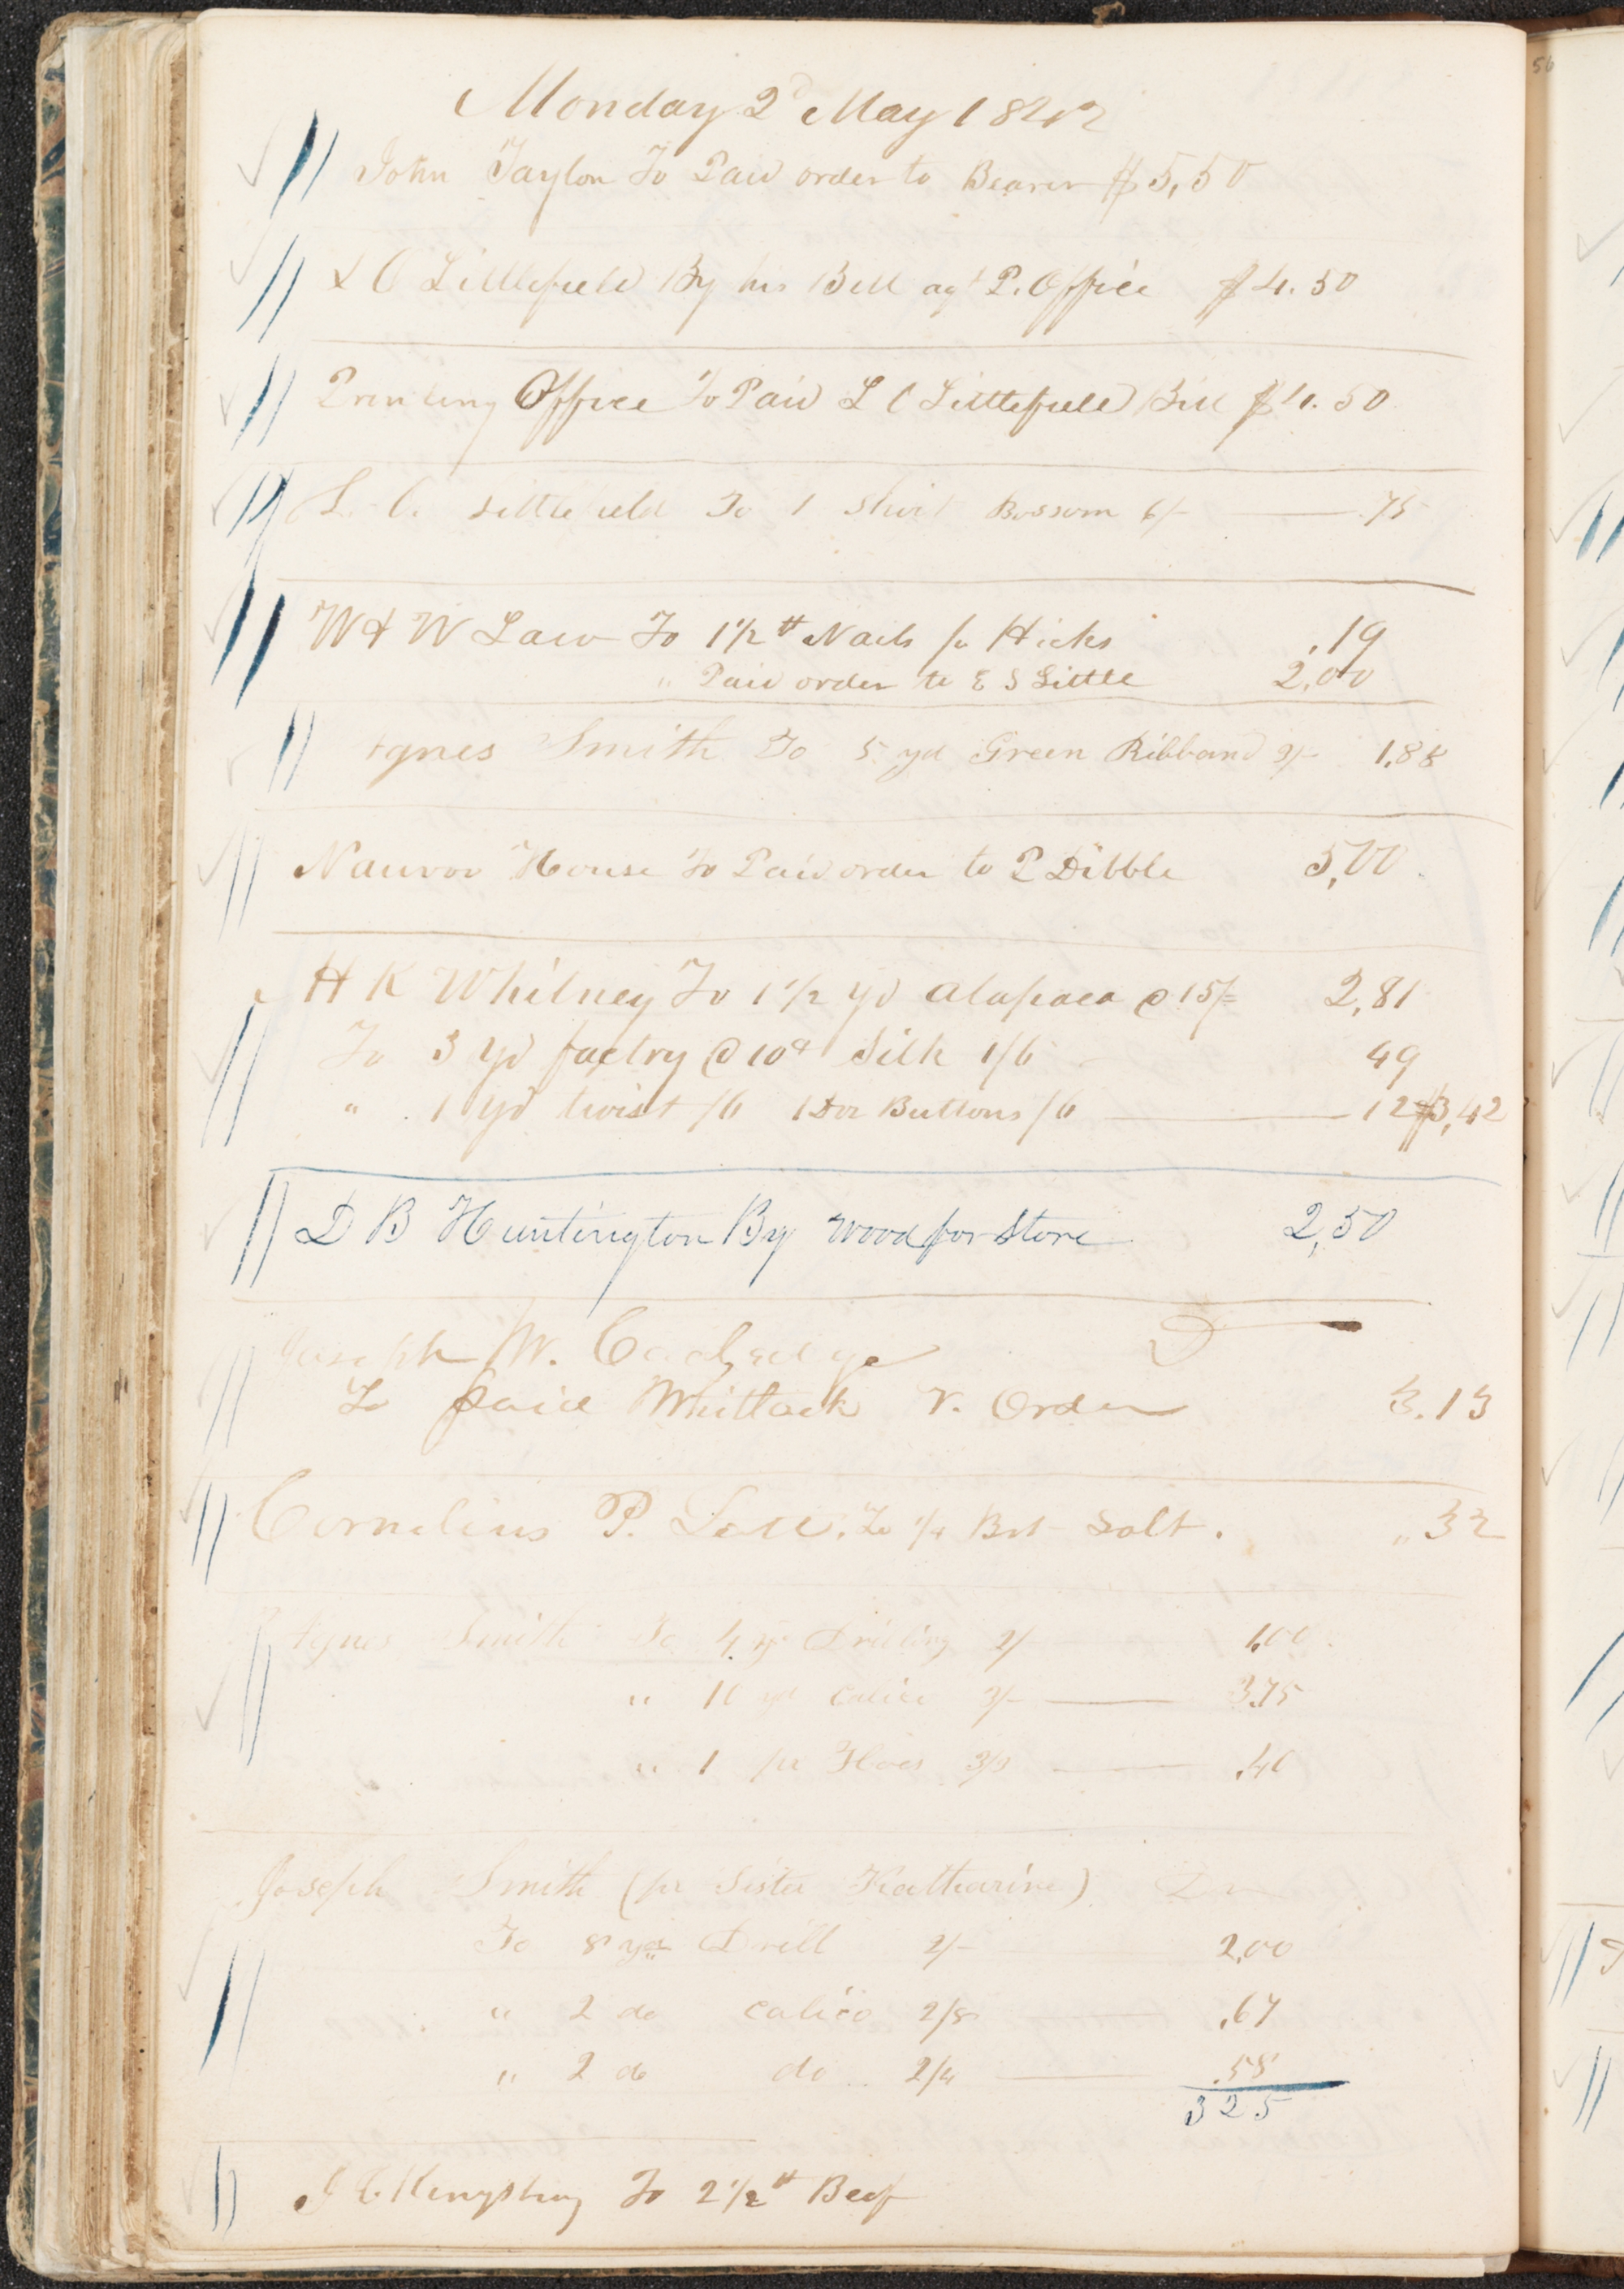 Monday 2d May 1842
John Taylor To Paid order to Bearer $5,50
L O Littlefield By his Bill agt P. Office $4.50
Printing Office To Paid L O Littlefield Bill $4.50
L. O. Littlefield To 1 Shirt Bossom 6/– 75
W & W Law To 1 1/2 # Nails pr Hicks .19
" Paid order to E S Little 2,00
Agnes Smith To 5 yd Green Ribband 3/– 1.88
Nauvoo House To Paid order to P Dibble 5,00
H K Whitney To 1 1/2 yd alapaca @ 15/= 2,81
To 3 yd factry @ 10d Silk 1/6 49
" 1 yd twist /6 1 Doz Buttons /6 12 $3,42
D B Huntington By wood for Store 2,50
Joseph W. D
To paid Whitlock V. Order 3.13
Cornelius P. Lott. To 1/4 Bst Salt. " 32
56
Agnes Smith To 4 yd Drilling 2/ 1,00
" 10 yd calico 3/– 3.75
" 1 pr 3/3 .40
Joseph Smith (pr Sister Katharine) Dr
To 8 yds Drill 2/– 2,00
" 2 do calico 2/8 .67
" 2 do do 2/4 .58
3 25
J C Kingsbury To 2 1/2 # Beef